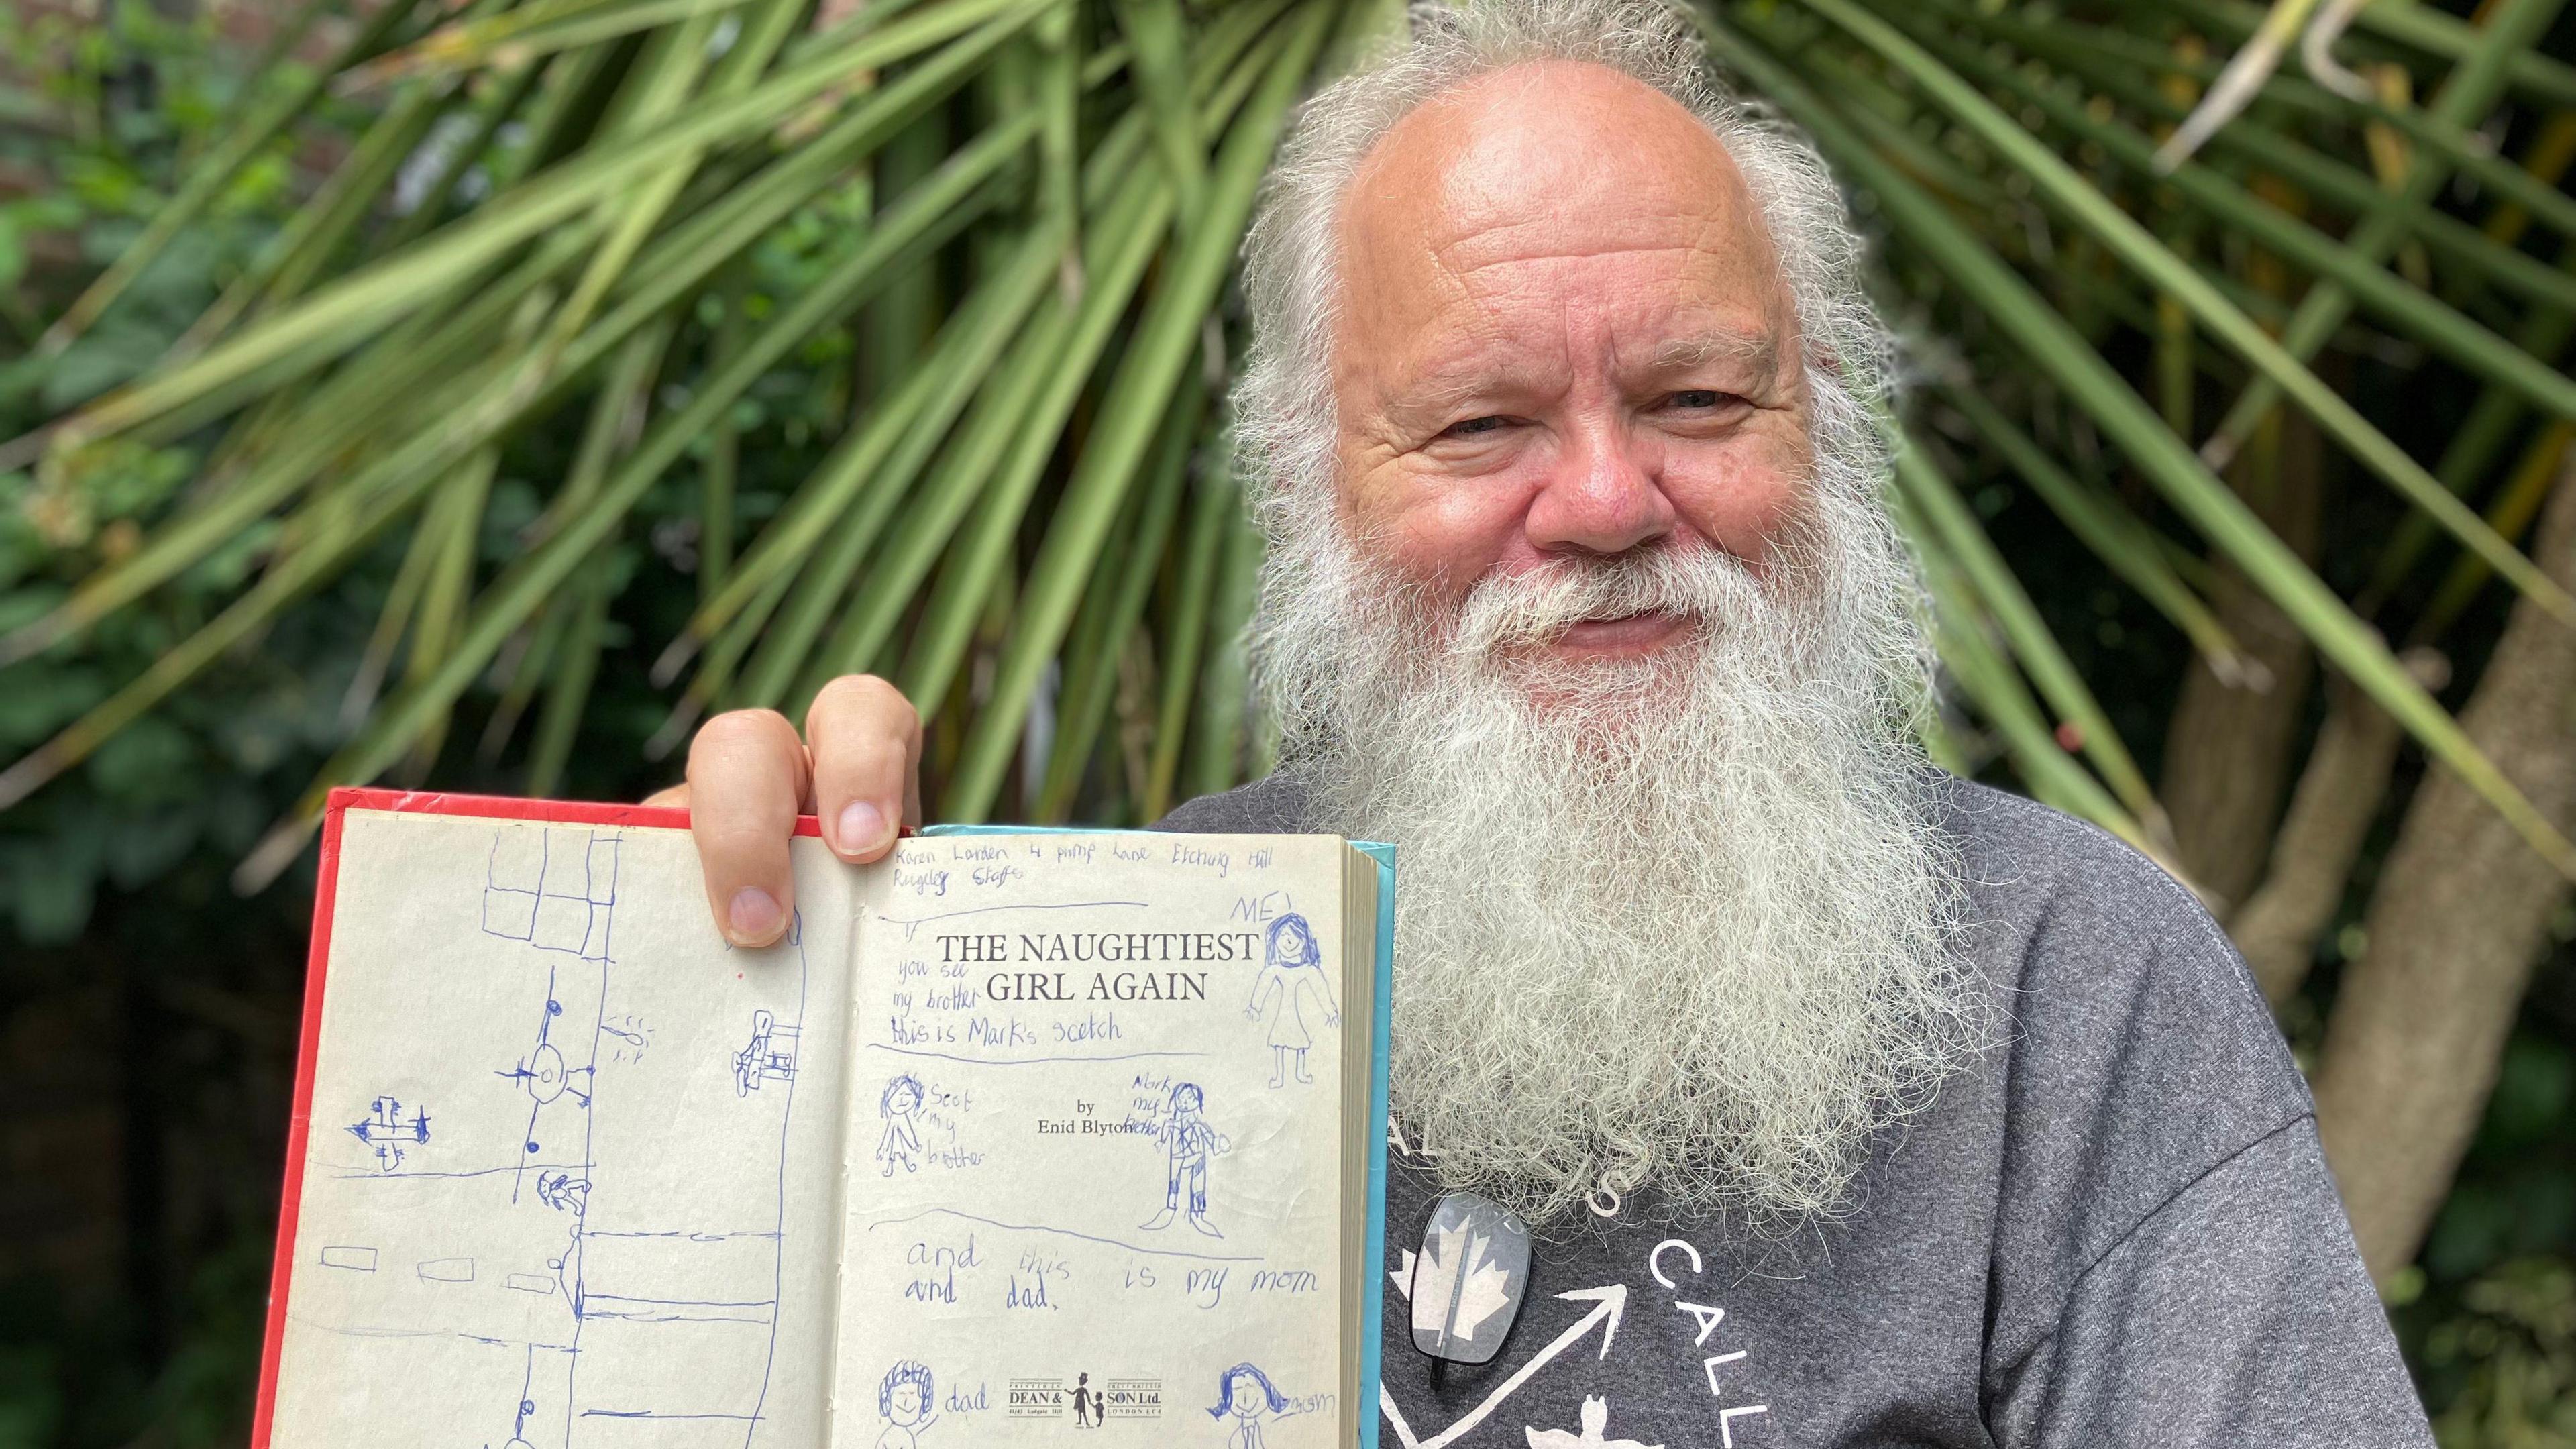 Karen Larden 4 pump Lane Etching Hill
Rugeley Staffs
ME!
THE NAUGHTIEST
GIRL AGAIN
you see
my brother
this is Mark's scetch
Scot
my
brother
Mark
my
brother
by
Enid Blyton
and this is my mom
and dad.
dad
DEAN & SON Ltd.
LONDON EC4
mom
CALL